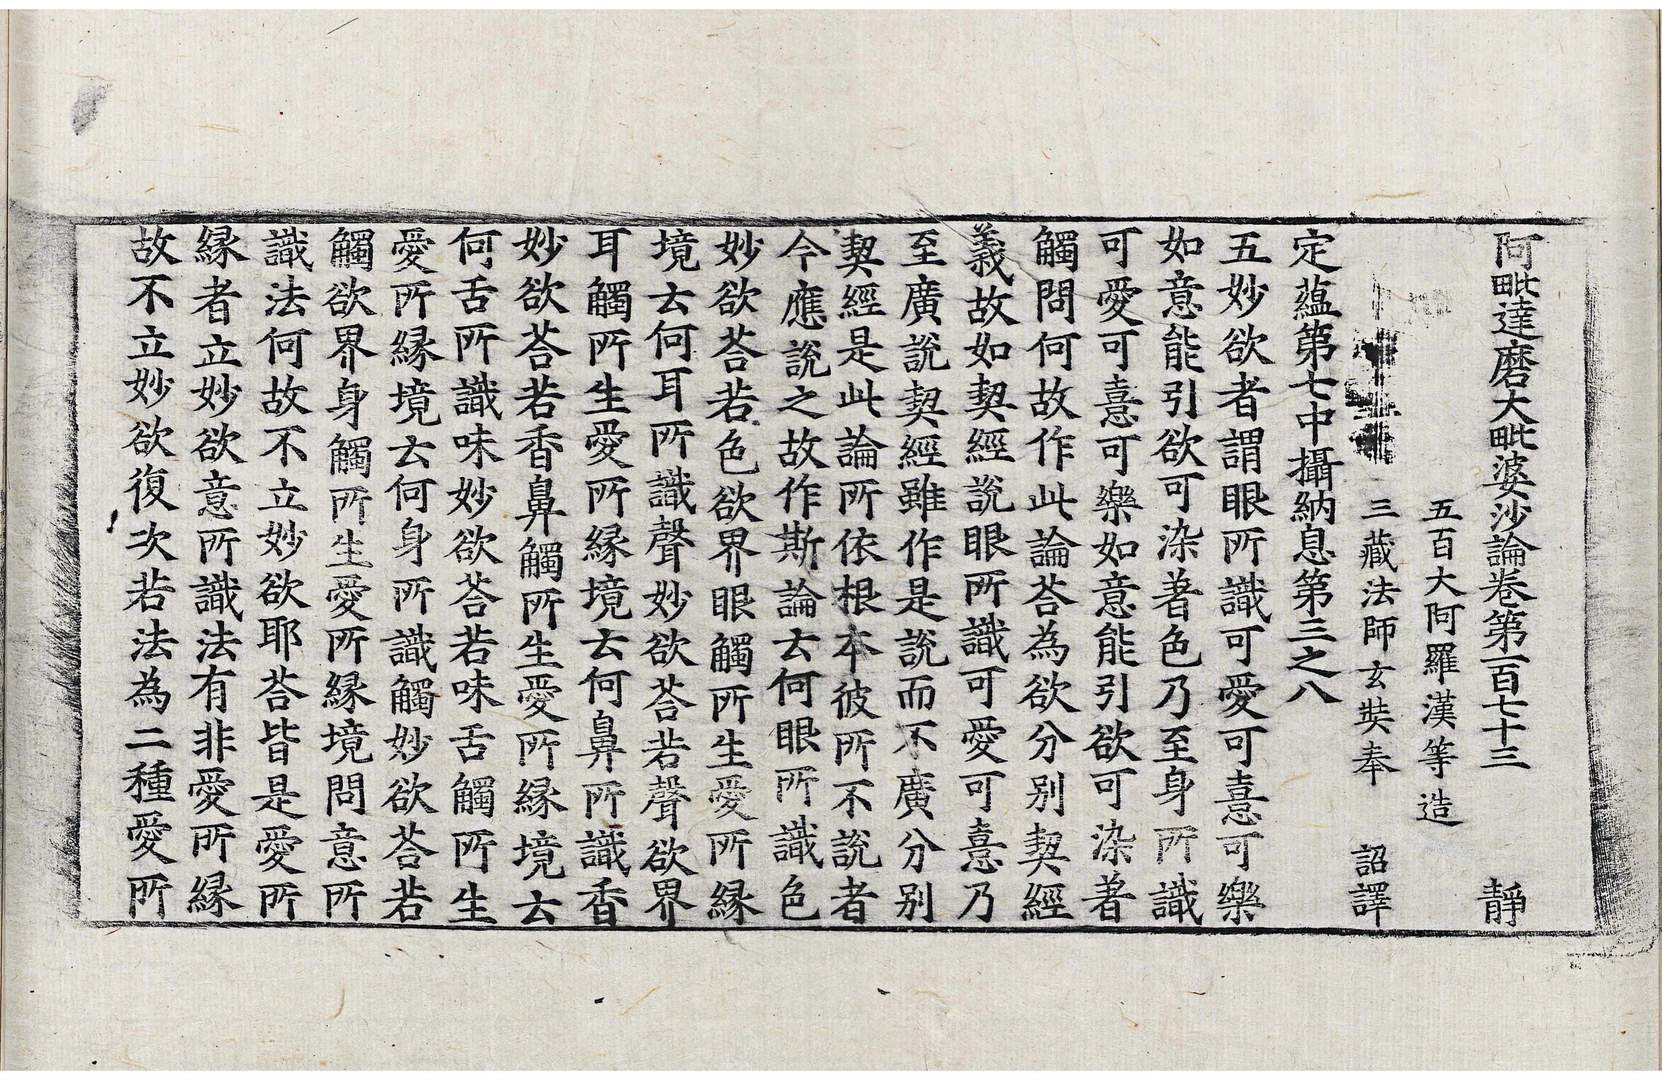 阿毗達磨大毗婆沙論卷第一百七十三　靜
五百大阿羅漢等造
三藏法師玄奘奉　詔譯
定蘊第七中攝納息第三之八
五妙欲者謂眼所識可愛可憙可樂
如意能引欲可染著色乃至身所識
可愛可憙可樂如意能引欲可染著
觸問何故作此論荅為欲分別契經
義故如契經說眼所識可愛可憙乃
至廣說契經雖作是說而不廣分別
契經是此論所依根本彼所不說者
今應說之故作斯論云何眼所識色
妙欲荅若色欲界眼觸所生愛所緣
境云何耳所識聲妙欲荅若聲欲界
耳觸所生愛所緣境云何鼻所識香
妙欲荅若香鼻觸所生愛所緣境云
何舌所識味妙欲荅若味舌觸所生
愛所緣境云何身所識觸妙欲荅若
觸欲界身觸所生愛所緣境問意所
識法何故不立妙欲耶荅皆是愛所
緣者立妙欲意所識法有非愛所緣
故不立妙欲復次若法為二種愛所